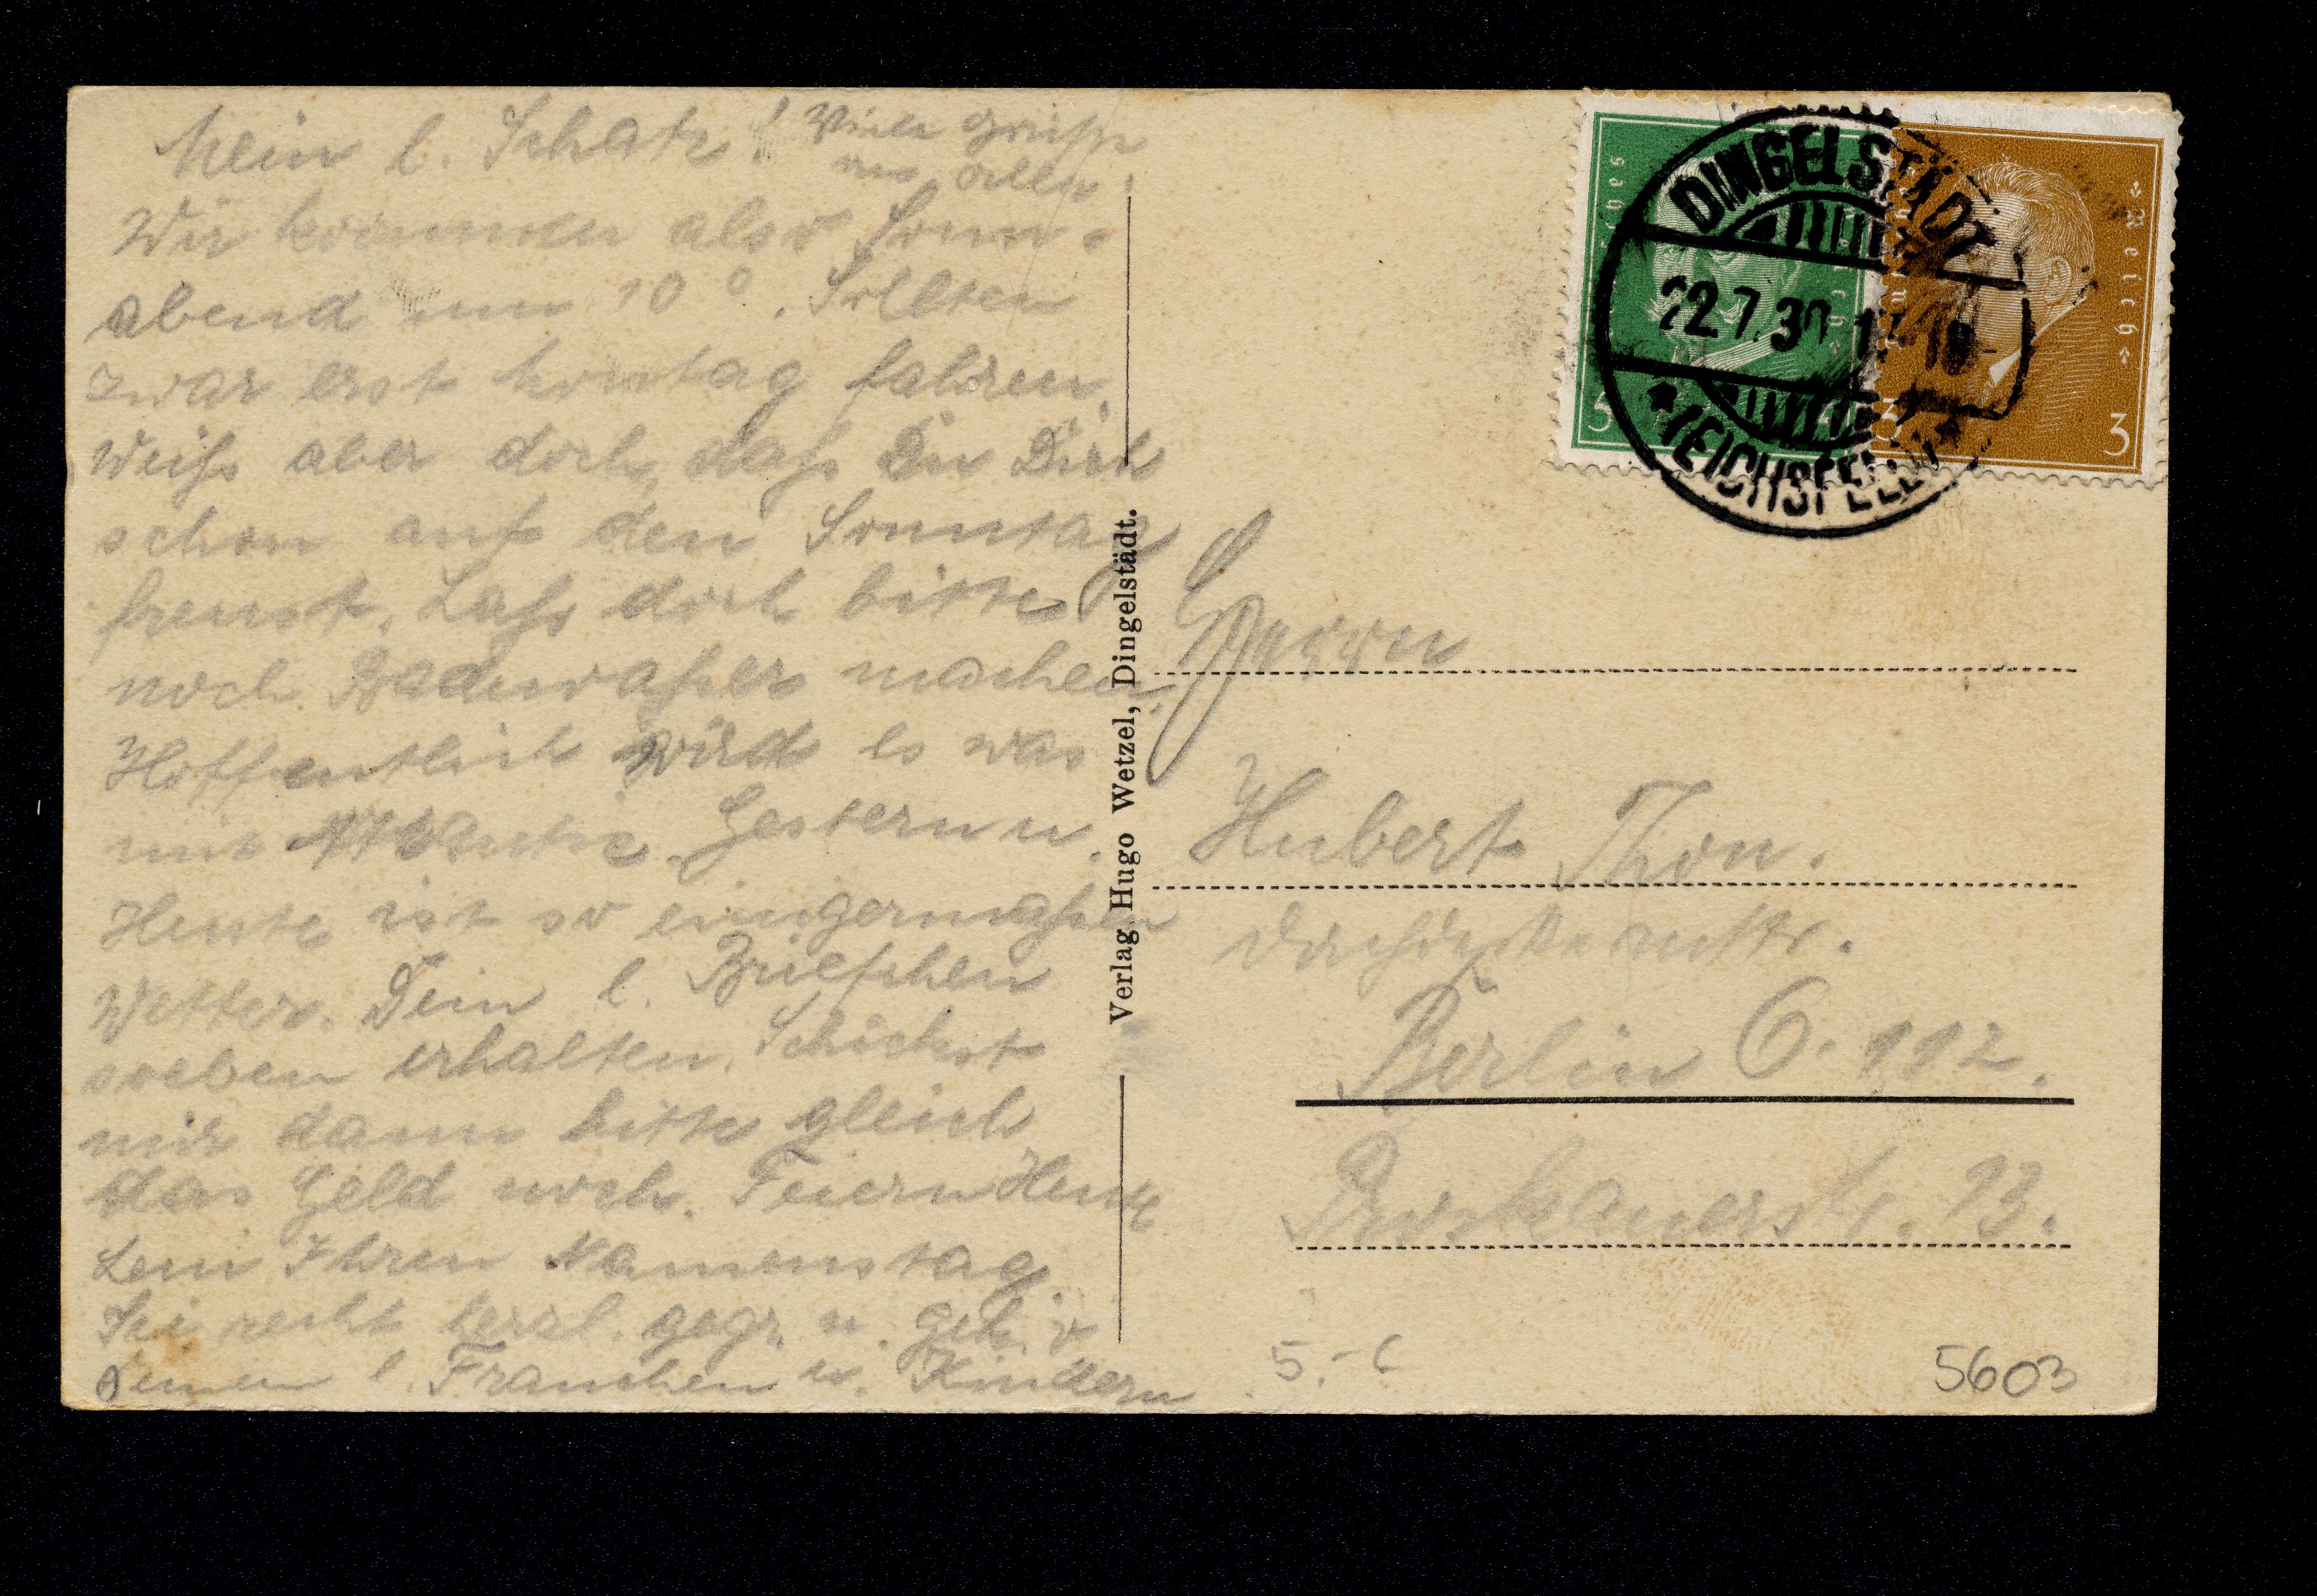 Mein l. Schatz! Viele Grüße
von allen.
Wir kommen also Sonn-
abend um 10⁰. Sollten
zwar erst Montag fahren,
weiß aber doch, daß Du Dich
schon auf den Sonntag
freust. Laß doch bitte
noch Badewaßer machen.
Hoffentlich wird es was
mit Gestern u.
Heute ist so einigermaßen
Wetter. Dein l. Briefchen
soeben erhalten. Schickst
mir dann bitte gleich
das Geld noch. Feiern Heute
Leni Ihren Namenstag.
Sei recht herzl. gegr. u. gek. v
Deinem l. Frauchen u. Kindern
Verlag Hugo Wetzel, Dingelstädt.
DINGELSTÄDT
22.7.30
(EICHSFELD)
Reich
5
3
3
Herrn
Hubert Thon.
Dachdeckermstr.
Berlin O. 112.
Proskauerstr. 13.
5.-
5603